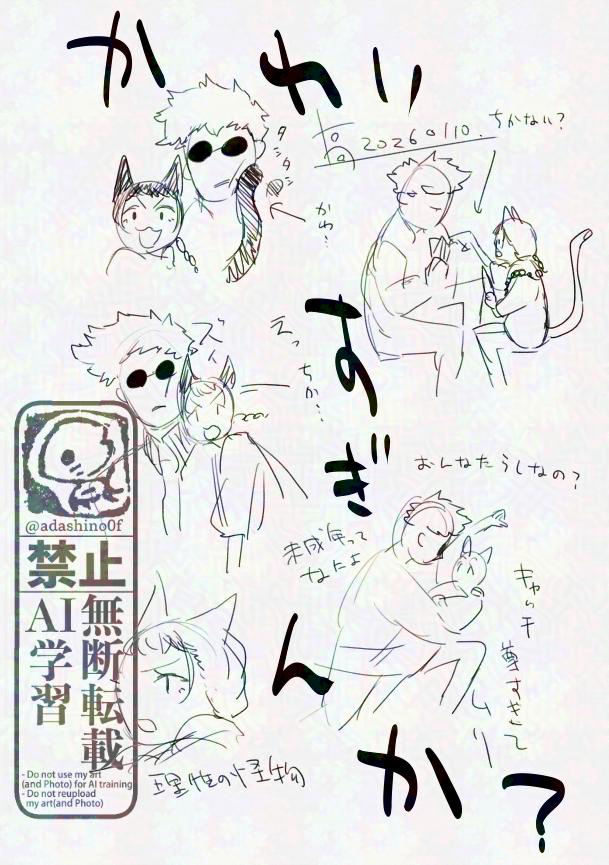 かわいすぎんか?
20260110.
ちかない?
タシタシ
かわ?
ズイ
えっ
ちか…
おんなたらしなの?
未成年って
なんだよ
キャッチ
尊すぎて
ムリー
理性の怪物
@adashino0f
禁止
無断転載
AI学習
- Do not use my art
(and Photo) for AI training
- Do not reupload
my art(and Photo)